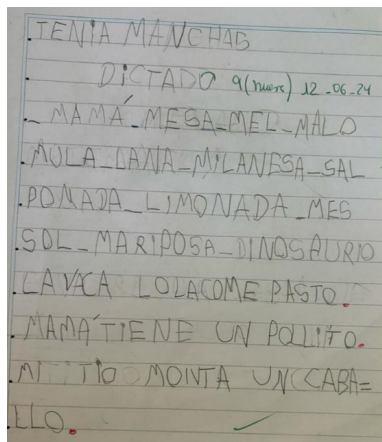 .TENIA MANCHAS
. DICTADO 9(nueve) 12-06-24
._ MAMÁ_MESA_MEL_MALO
.MULA_LANA_MILANESA_SAL
.POMADA_LIMONADA_MES
.SOL_MARIPOSA_DINOSAURIO
.LA VACA LOLACOME PASTO.
.MAMÁ TIENE UN POLLITO.
.MI TÍO MONTA UN CABA=
.LLO.